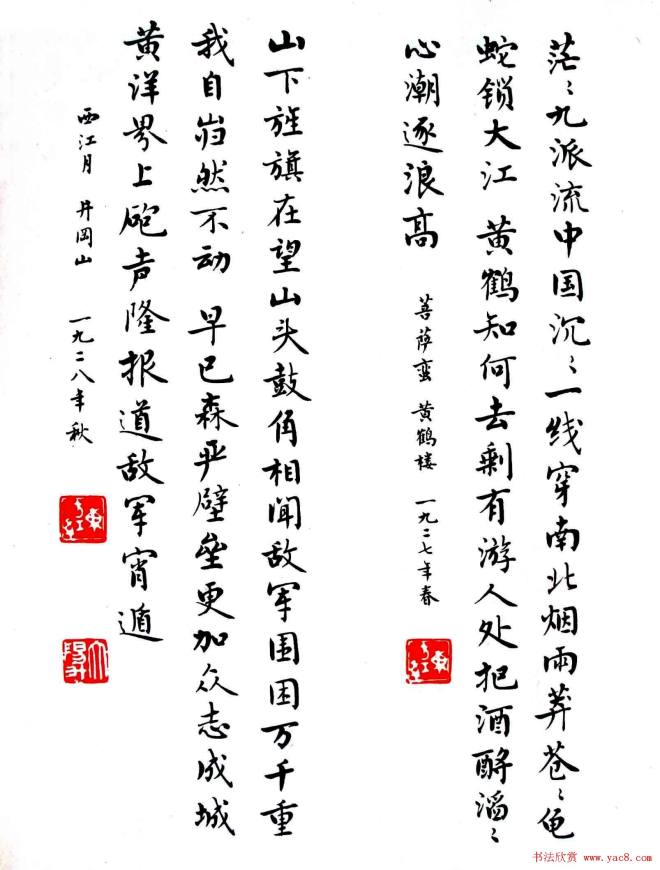 茫〻九派流中国沉〻一线穿南北烟雨莽苍〻龟
蛇锁大江 黄鹤知何去剩有游人处把酒酹滔〻
心潮逐浪高
菩萨蛮 黄鹤楼 一九二七年春
山下旌旗在望山头鼓角相闻敌军围困万千重
我自岿然不动 早已森严壁垒更加众志成城
黄洋界上砲声隆报道敌军宵遁
西江月 井冈山 一九二八年秋
书法欣赏 www.yac8.com